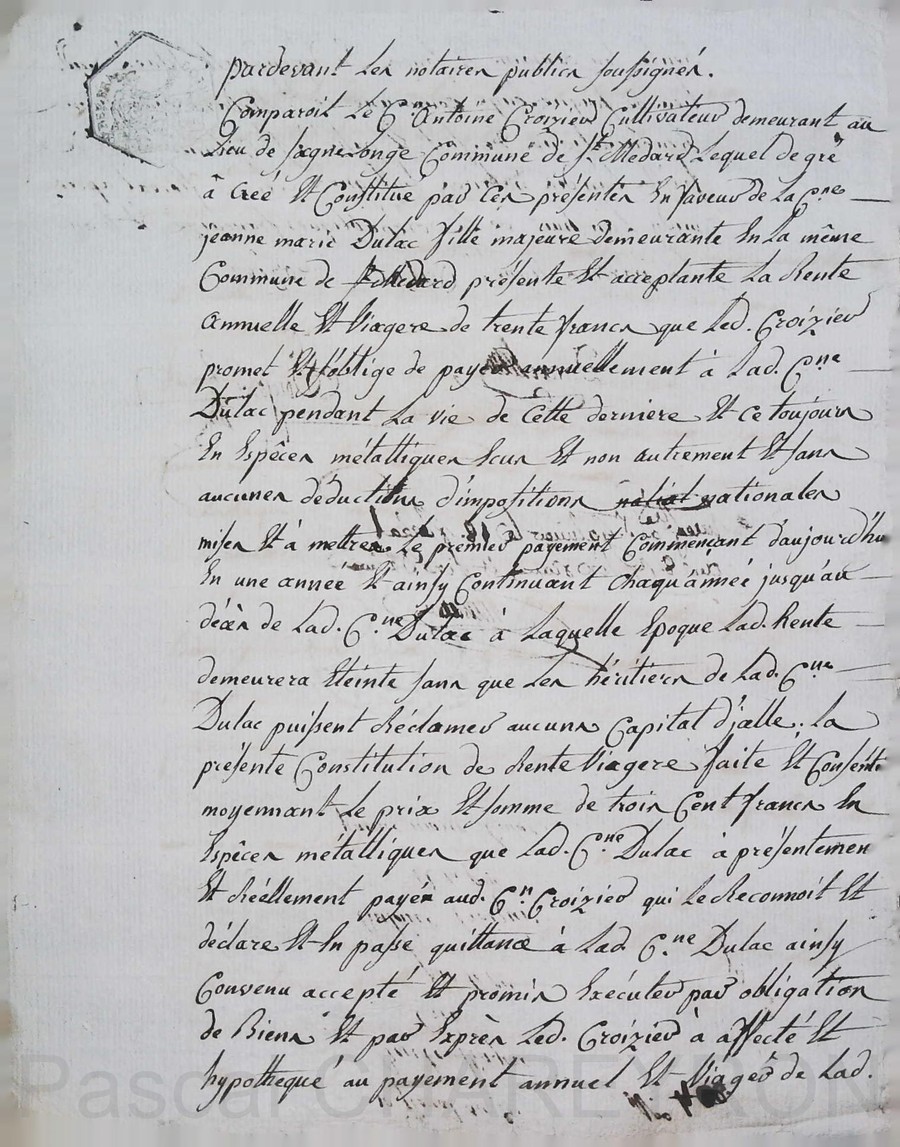 pardevant les notaires publics soussignés.
Comparoit le C.en Antoine Croizier Cultivateur demeurant au
Lieu de sagnelonge Commune de St. Medard Lequel de gré
à Créé Et Constitué par Ces présentes En faveur de la C.ne
jeanne marie Dulac fille majeure demeurante En la même
Commune de St. Medard présente Et acceptante La Rente
annuelle Et Viagere de trente francs que Led. Croizier
promet Et s'oblige de payer annuellement à Lad. C.ne
Dulac pendant La vie de Cette derniere Et ce toujours
En Espêces métalliques Ecus Et non autrement Et sans
aucunes déductions d'impositions nationales
mises Et à mettre Le premier payement Commençant d'aujourd'hu
En une année Et ainsy Continuant Chaqu'année jusqu'au
décès de Lad. C.ne Dulac à Laquelle Epoque Lad. Rente
demeurera Eteinte sans que Les héritiers de Lad. C.ne
Dulac puissent Réclamer aucuns Capital d'jcelle. La
présente Constitution de Rente Viagere faite Et Consenti
moyennant Le prix Et somme de trois Cent francs En
Espêces métalliques que Lad. C.ne Dulac à présentemen
Et Réellement payés aud. C.n Croizier qui Le Reconnoit Et
déclare Et En passe quittance à Lad. C.ne Dulac ainsy
Convenu accepté Et promis Exécuter par obligation
de Biens Et par Exprès Led. Croizier à affecté Et
hypothequé au payement annuel Et Viager de Lad.
Pascal CHAREYRON